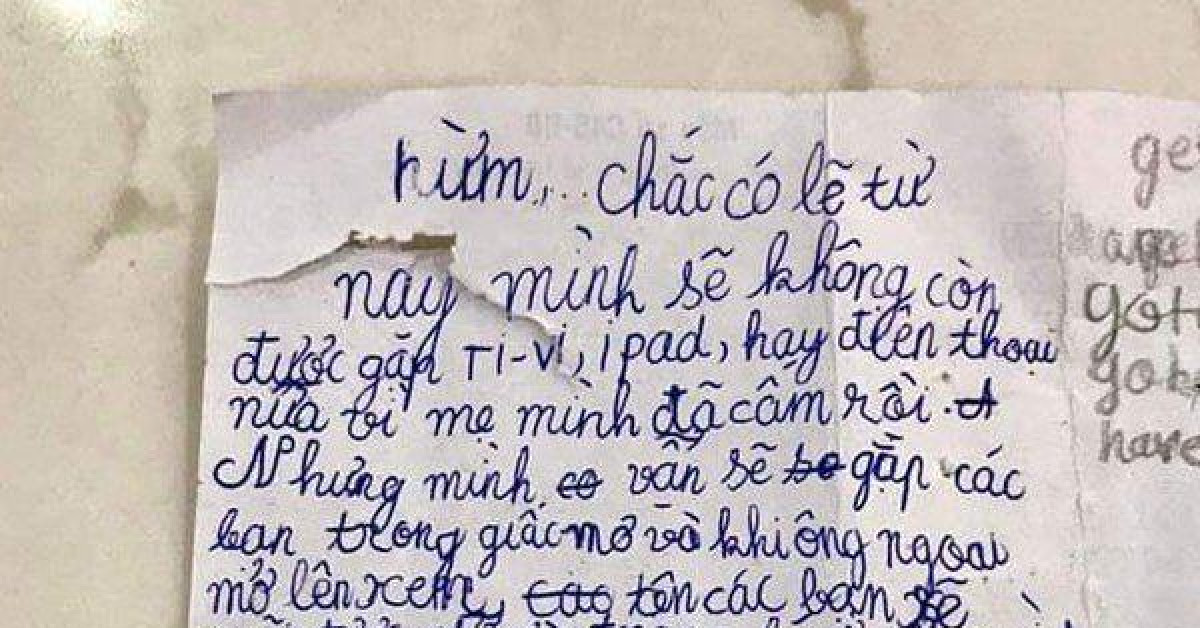 hừm,... chắc có lẽ từ
nay mình sẽ không còn
được gặp Ti-vi, ipad, hay điện thoại
nữa vì mẹ mình đã cấm rồi.
Nhưng mình vẫn sẽ gặp các
bạn trong giấc mơ và khi ông ngoại
mở lên xem, tên các bạn sẽ
got
have